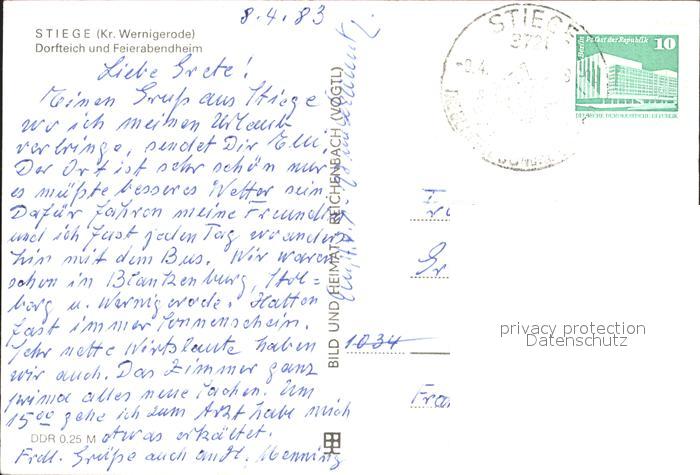 8.4.83
STIEGE (Kr. Wernigerode)
Dorfteich und Feierabendheim
Liebe Grete!
Einen Gruß aus Stiege
wo ich meinen Urlaub
verbringe, sendet Dir
Der Ort ist sehr schön nur
es müßte besseres Wetter sein.
Dafür fahren meine Freundin
und ich fast jeden Tag wo anders
hin mit dem Bus. Wir waren
schon in Blankenburg, Stol=
berg u. Wernigerode. Hatten
fast immer Sonnenschein.
Sehr nette Wirtsleute haben
wir auch. Das Zimmer ganz
prima alles neue Sachen. Um
15.00 gehe ich zum Arzt habe mich
DDR 0.25 M etwas erkältet.
Frdl. Grüße auch
BILD UND HEIMAT REICHENBACH (VOGTL)
STIEGE
3721
Berlin Palast der Republik
10
DEUTSCHE DEMOKRATISCHE REPUBLIK
Gr
1034
Fra
privacy protection
Datenschutz